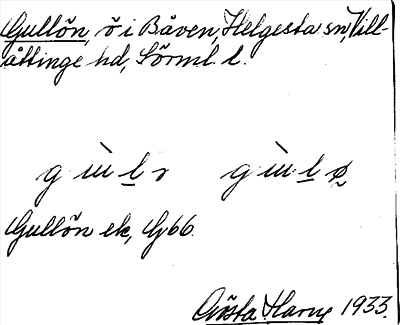 Gullön, ö i Båven, Helgesta sn, Vill-
åttinge hd, Sörml. l.
Gullön ek, G66.
Gösta Harne 1933.